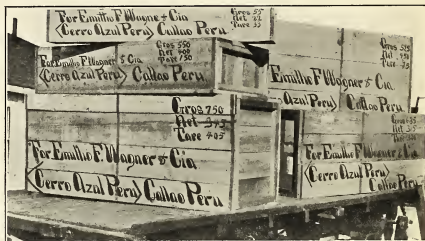 For Emilio F Wagner & Cia
(Cerro Azul Peru) Callao Peru
Gros 55
Net 22
Tare 33
For Emilio F Wagner & Cia
(Cerro Azul Peru) Callao Peru
Gros 550
Net 400
Tare 150
Emilio F Wagner & Cia
Azul Peru) Callao Peru
Gros 525
Net 450
Tare 75
Gros 750
Net 345
Tare 405
For Emilio F. Wagner & Cia
(Cerro Azul Peru) Callao Peru
Net 315
For Emilio F Wagner & Cia
(Cerro Azul Peru)
Callao Peru